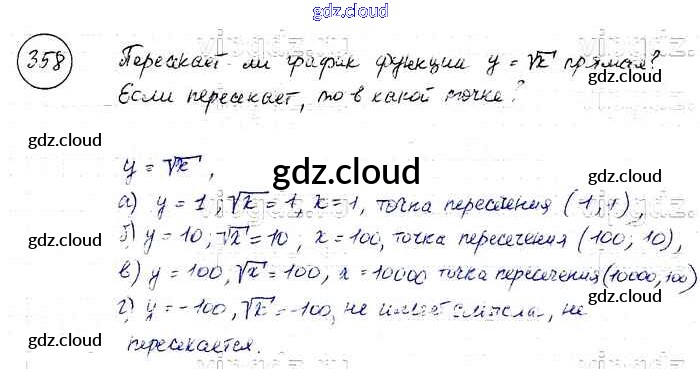 gdz.cloud
358 Пересекает ли график функции y = √x прямая?
Если пересекает, то в какой точке?
gdz.cloud gdz.cloud
y = √x,
gdz.cloud
а) y = 1, √x = 1, x = 1, точка пересечения (1; 1),
gdz.cloud gdz.cloud
б) y = 10, √x = 10, x = 100, точка пересечения (100; 10),
gdz.cloud gdz.cloud
в) y = 100, √x = 100, x = 10000 точка пересечения (10000, 100)
gdz.cloud
г) y = -100, √x = -100, не имеет смысла, не
пересекается.
gdz.cloud gdz.cloud